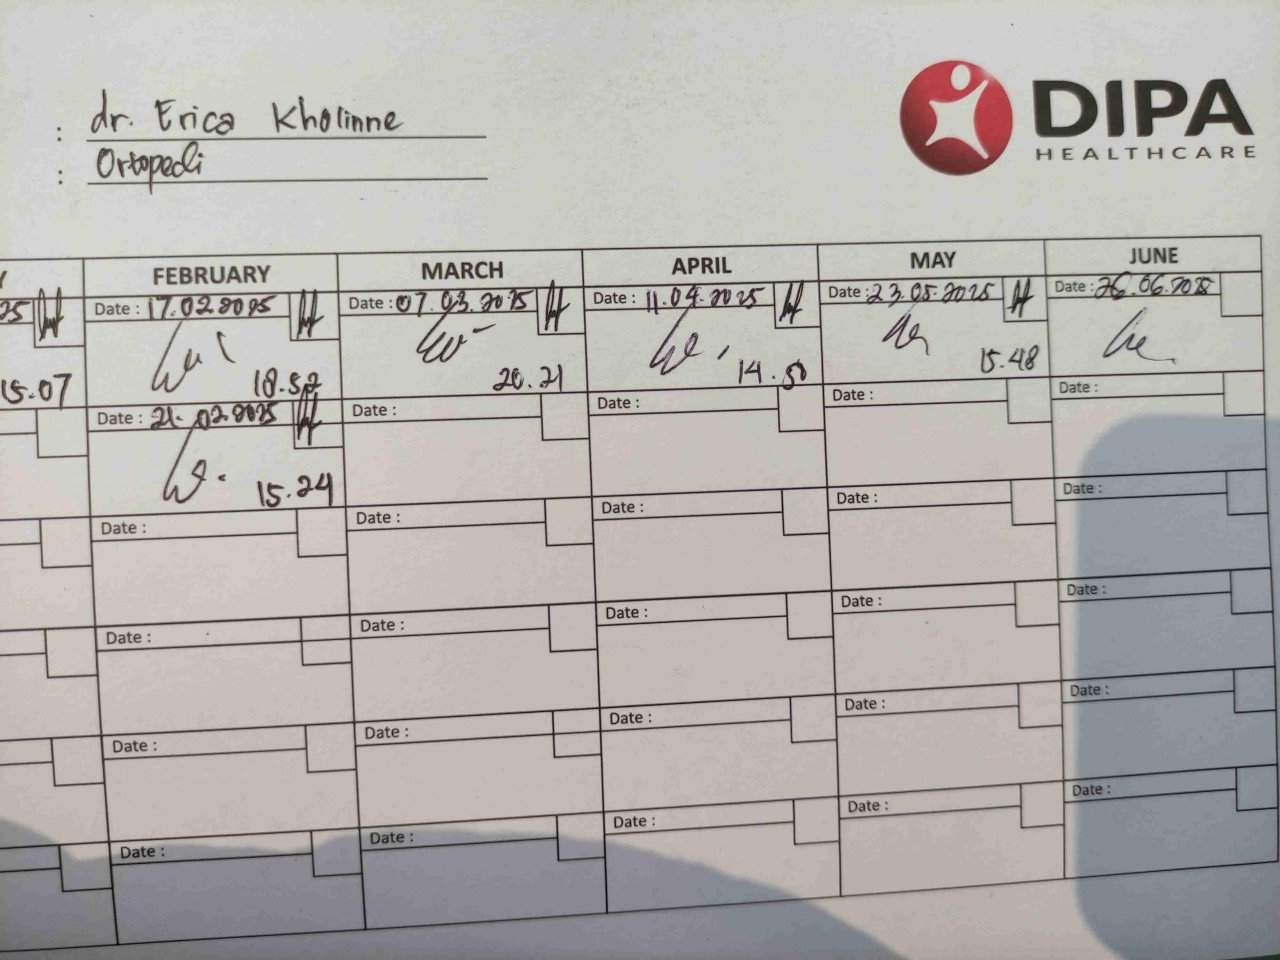 DIPA
HEALTHCARE
: dr. Erica Kholinne
: Ortopedi
FEBRUARY MARCH APRIL MAY JUNE
25 Date : 17.02.2025 Date : 07.03.2025 Date : 11.04.2025 Date : 23.05.2025 Date : 26.06.2025
15.07 18.52 20.21 14.50 15.48
Date : 21.02.2025 Date : Date : Date : Date :
15.24
Date : Date : Date : Date : Date :
Date : Date : Date : Date : Date :
Date : Date : Date : Date : Date :
Date : Date : Date : Date : Date :